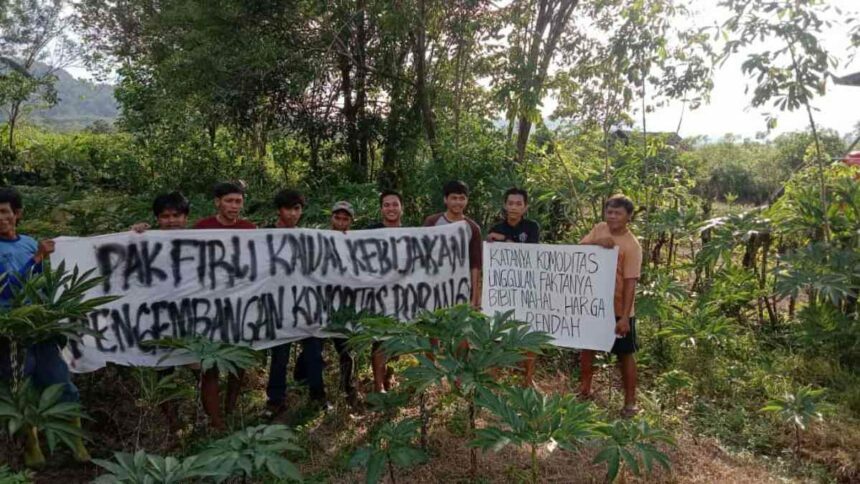 PAK FIRLI KAWAL KEBIJAKAN
PENGEMBANGAN KOMODITAS PORANG
KATANYA KOMODITAS
UNGGULAN FAKTANYA
BIBIT MAHAL, HARGA
RENDAH